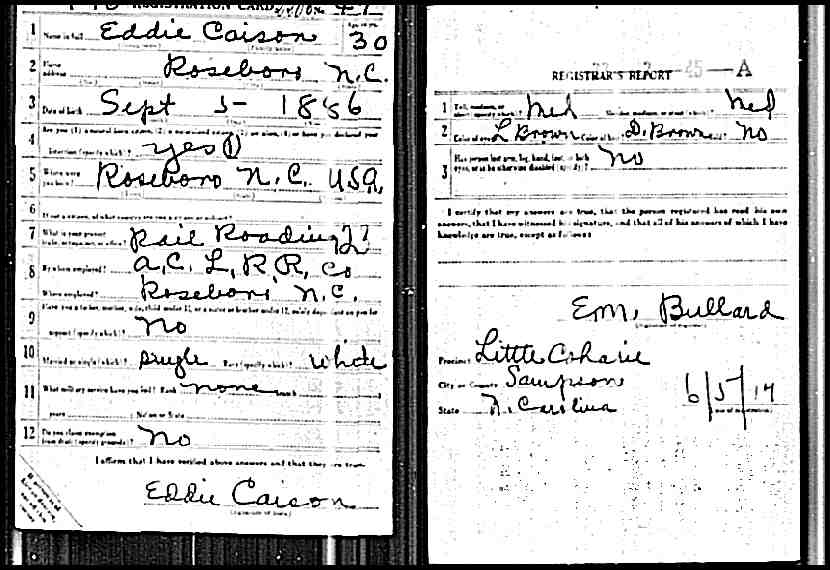 REGISTRATION CARD No.
1 Name in full Eddie Caison 30
2 Home address Roseboro N.C.
3 Date of birth Sept 5- 1886
4
yes (1)
5 Where were you born? Roseboro N.C. USA,
6 If not a citizen, of what country are you a citizen or subject?
7 What is your present trade, occupation, or office? Rail Roading
8 By whom employed? A.C. L, R R, Co
Where employed? Roseboro N.C.
9
support (specify which)? No
10 Married or single (which)? Single Race (specify which)? White
11 What military service have you had? Rank none branch
years Nation or State
12 Do you claim exemption from draft (specify grounds)? No
I affirm that I have verified above answers and that they are true.
Eddie Caison
REGISTRAR'S REPORT A
1 Tall, medium, or short (specify which)? Med Slender, medium, or stout (which)? Med
2 Color of eyes L Brown Color of hair D. Brown No
3 Has person lost arm, leg, hand, foot, or both eyes, or is he otherwise disabled (specify)? No
I certify that my answers are true, that the person registered has read his own
answers, that I have witnessed his signature, and that all of his answers of which I have
knowledge are true, except as follows:
Em, Bullard
Precinct Little Coharie
City or County Sampson
State N. Carolina
6/5/17